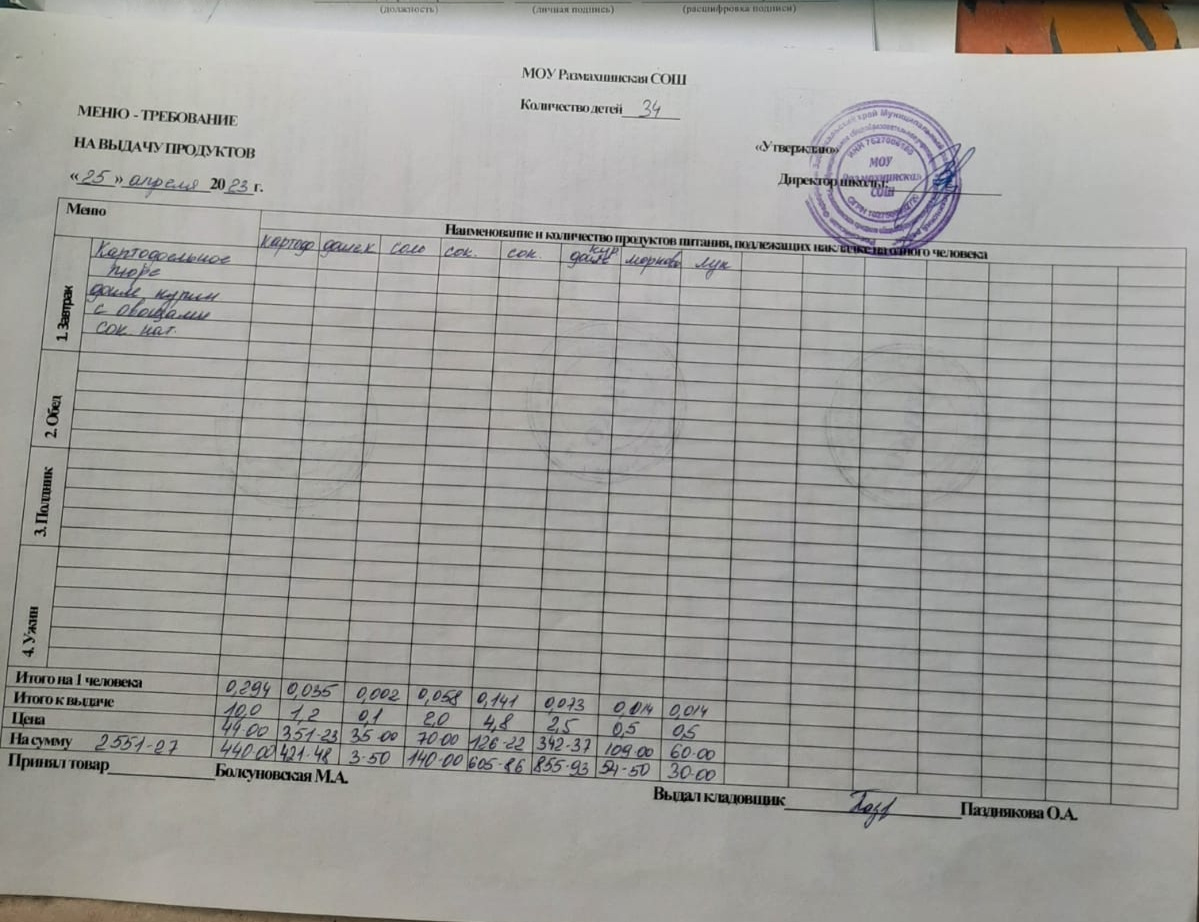 (должность) (личная подпись) (расшифровка подписи)
МОУ Размахнинская СОШ
Количество детей 34
МЕНЮ - ТРЕБОВАНИЕ
НА ВЫДАЧУ ПРОДУКТОВ
«Утверждаю»
Директор школы:
« 25 » апреля 20 23 г.
МОУ
Размахнинская
СОШ
Меню
Наименование и количество продуктов питания, подлежащих накладке на одного человека
картофе сок. сок. морковь лук
1. Завтрак
Картофельное
пюре
с овощами
сок нат.
2. Обед
3. Полдник
4. Ужин
Итого на 1 человека 0,294 0,035 0,002 0,058 0,141 0,073 0,014 0,014
Итого к выдаче 10,0 1,2 0,1 2,0 4,8 2,5 0,5 0,5
Цена 44-00 351-23 35-00 70-00 126-22 342-37 109-00 60-00
На сумму 2551-27 440-00 421-48 3-50 140-00 605-86 855-93 54-50 30-00
Принял товар Болсуновская М.А.
Выдал кладовщик Пазднякова О.А.